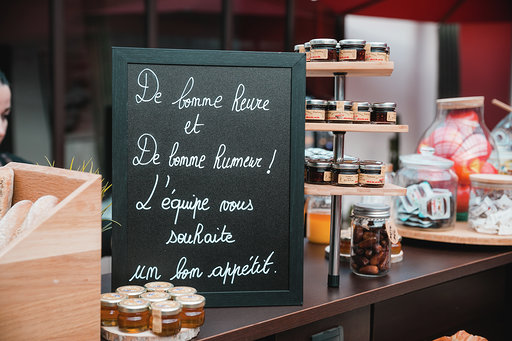 De bonne heure
et
De bonne humeur !
L'équipe vous
souhaite
un bon appétit.